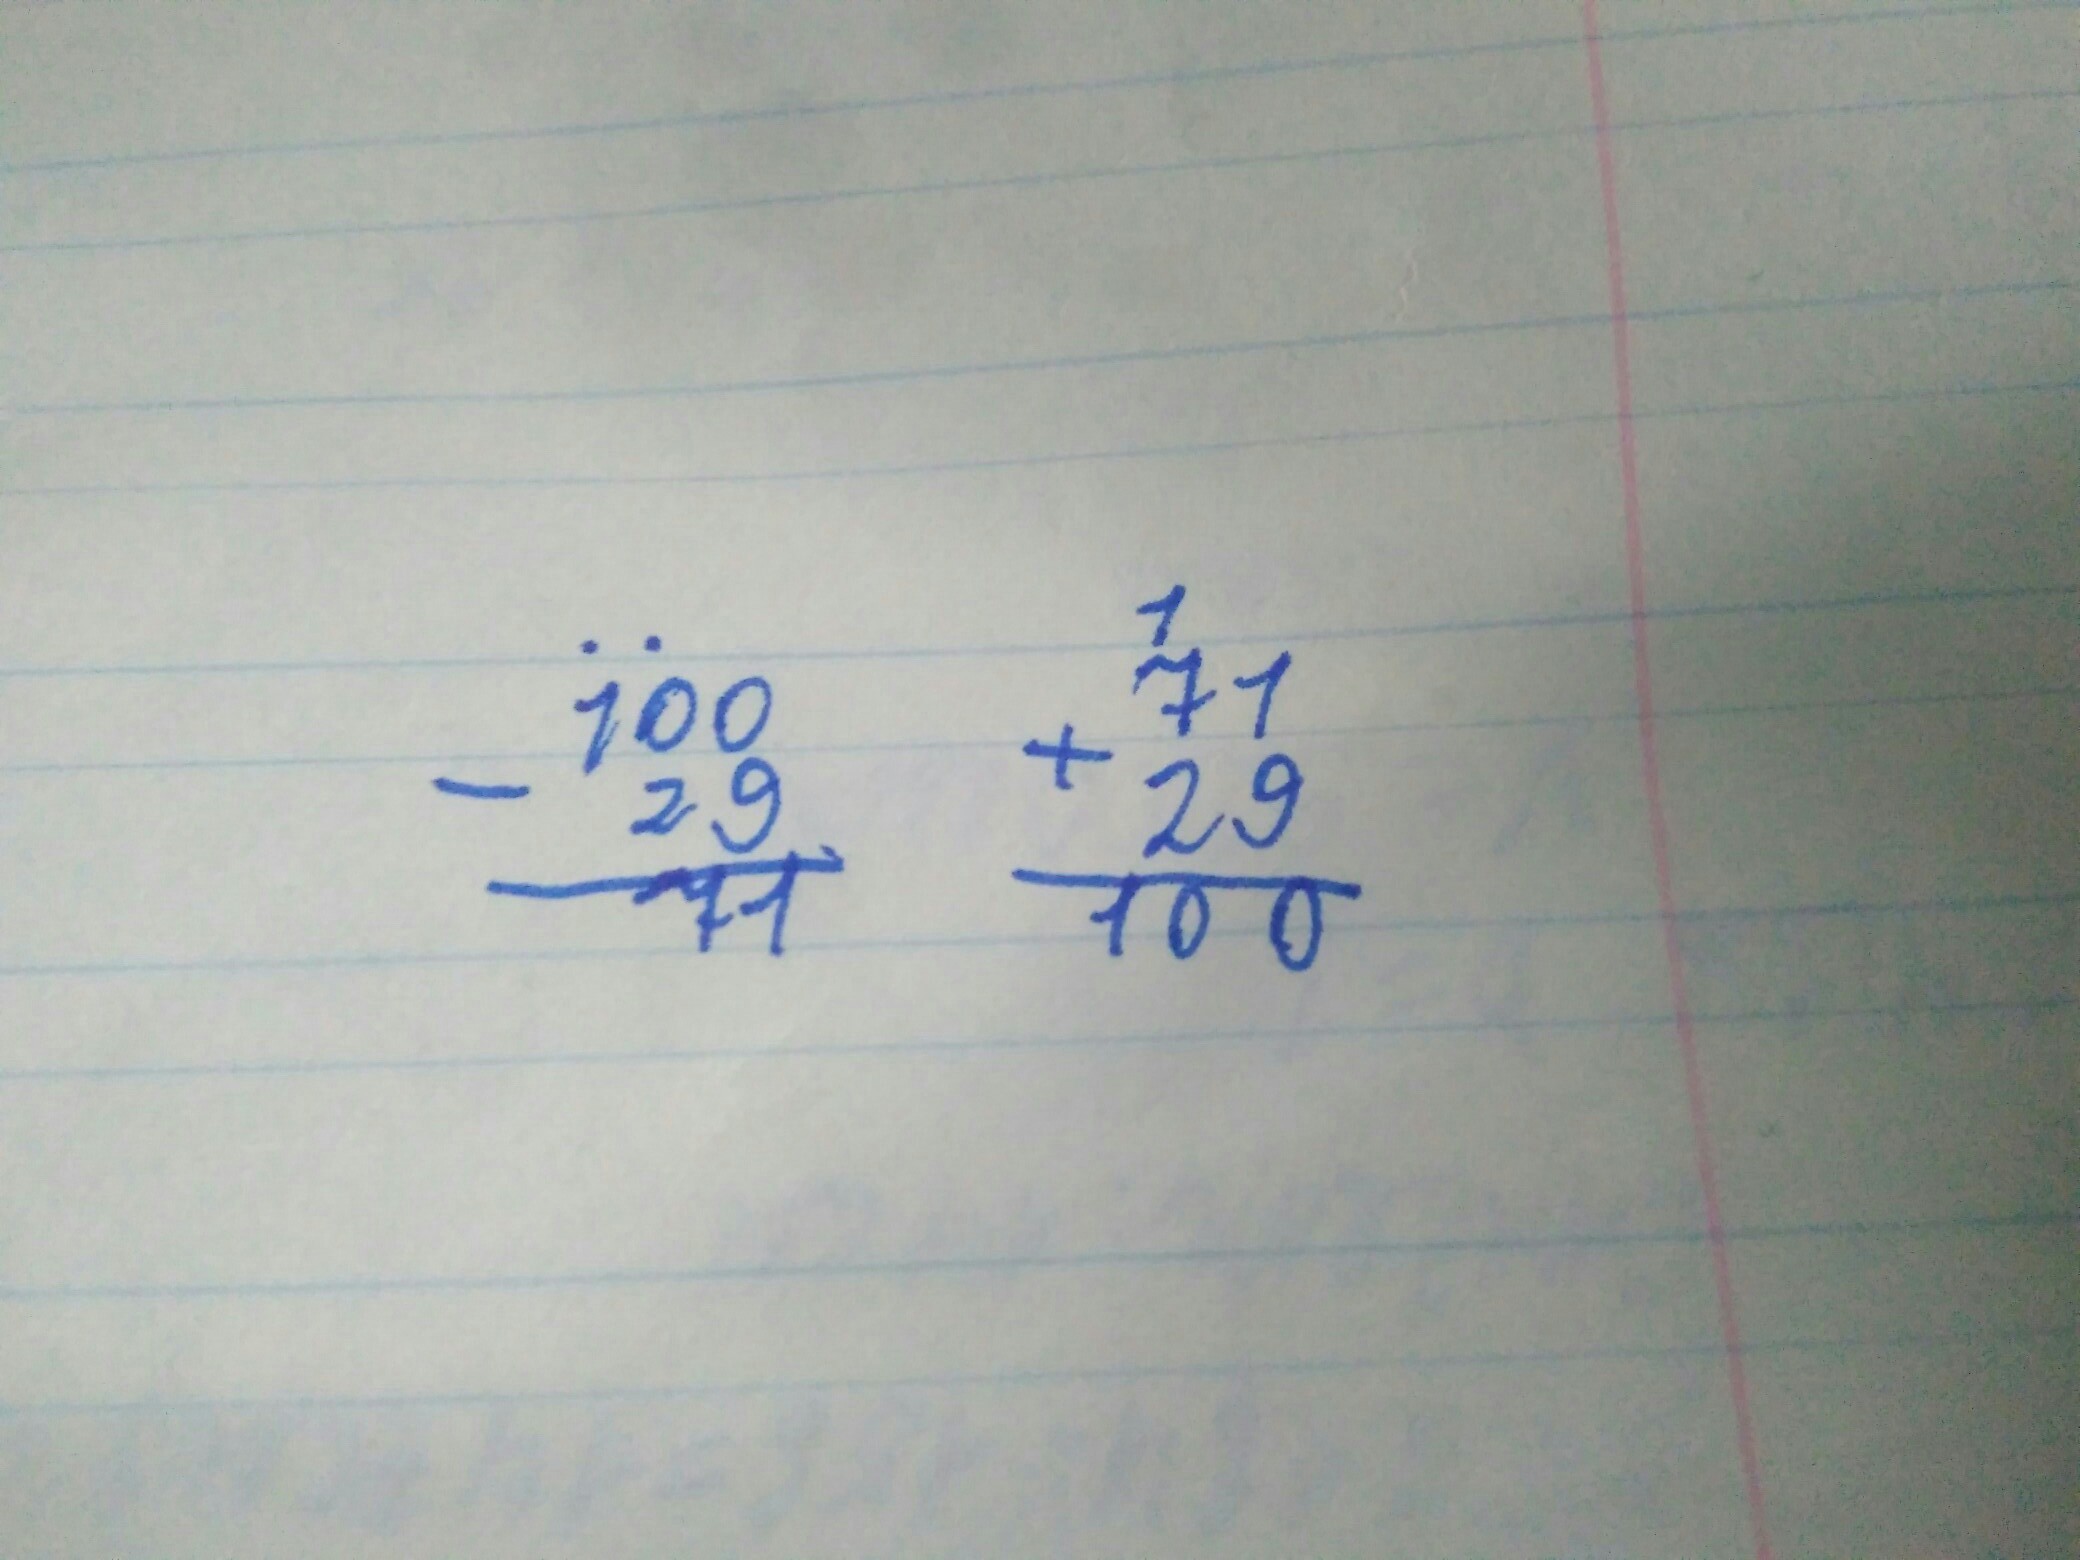 100
- 29
71
1
71
+ 29
100